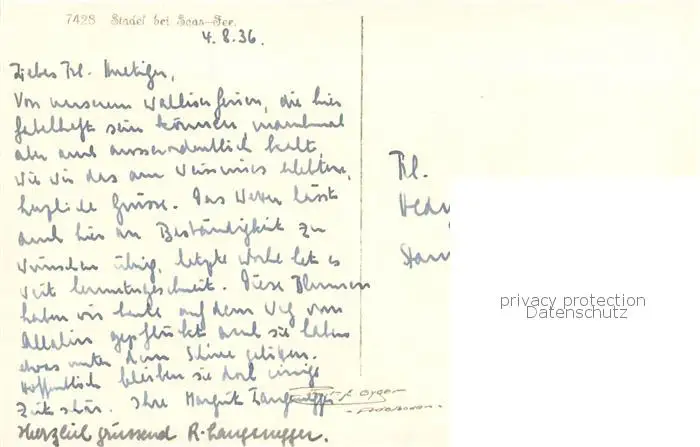 7428 Sindel bei Saas-Fee.
4.8.36.
Liebes Frl. Metziger,
Von unserem Walliserferien, die hier
fabelhaft sein können, manchmal
aber auch ausserordentlich kalt,
wie wir das am Weissmies erlebten,
herzliche Grüsse. Das Wetter lässt
auch hier an Beständigkeit zu
wünschen übrig, letzte Woche hat es
weit heruntergeschneit. Diese Blumen
haben wir heute auf dem Weg vom
Allalin gepflückt und sie haben
etwas unter dem Schnee gelitten.
Hoffentlich bleiben sie doch einige
Zeit schön. Ihre Margrit Langenegger
Herzlich grüssend R. Langenegger.
Frl.
Hedy
privacy protection
Datenschutz
Gyger
Adelboden